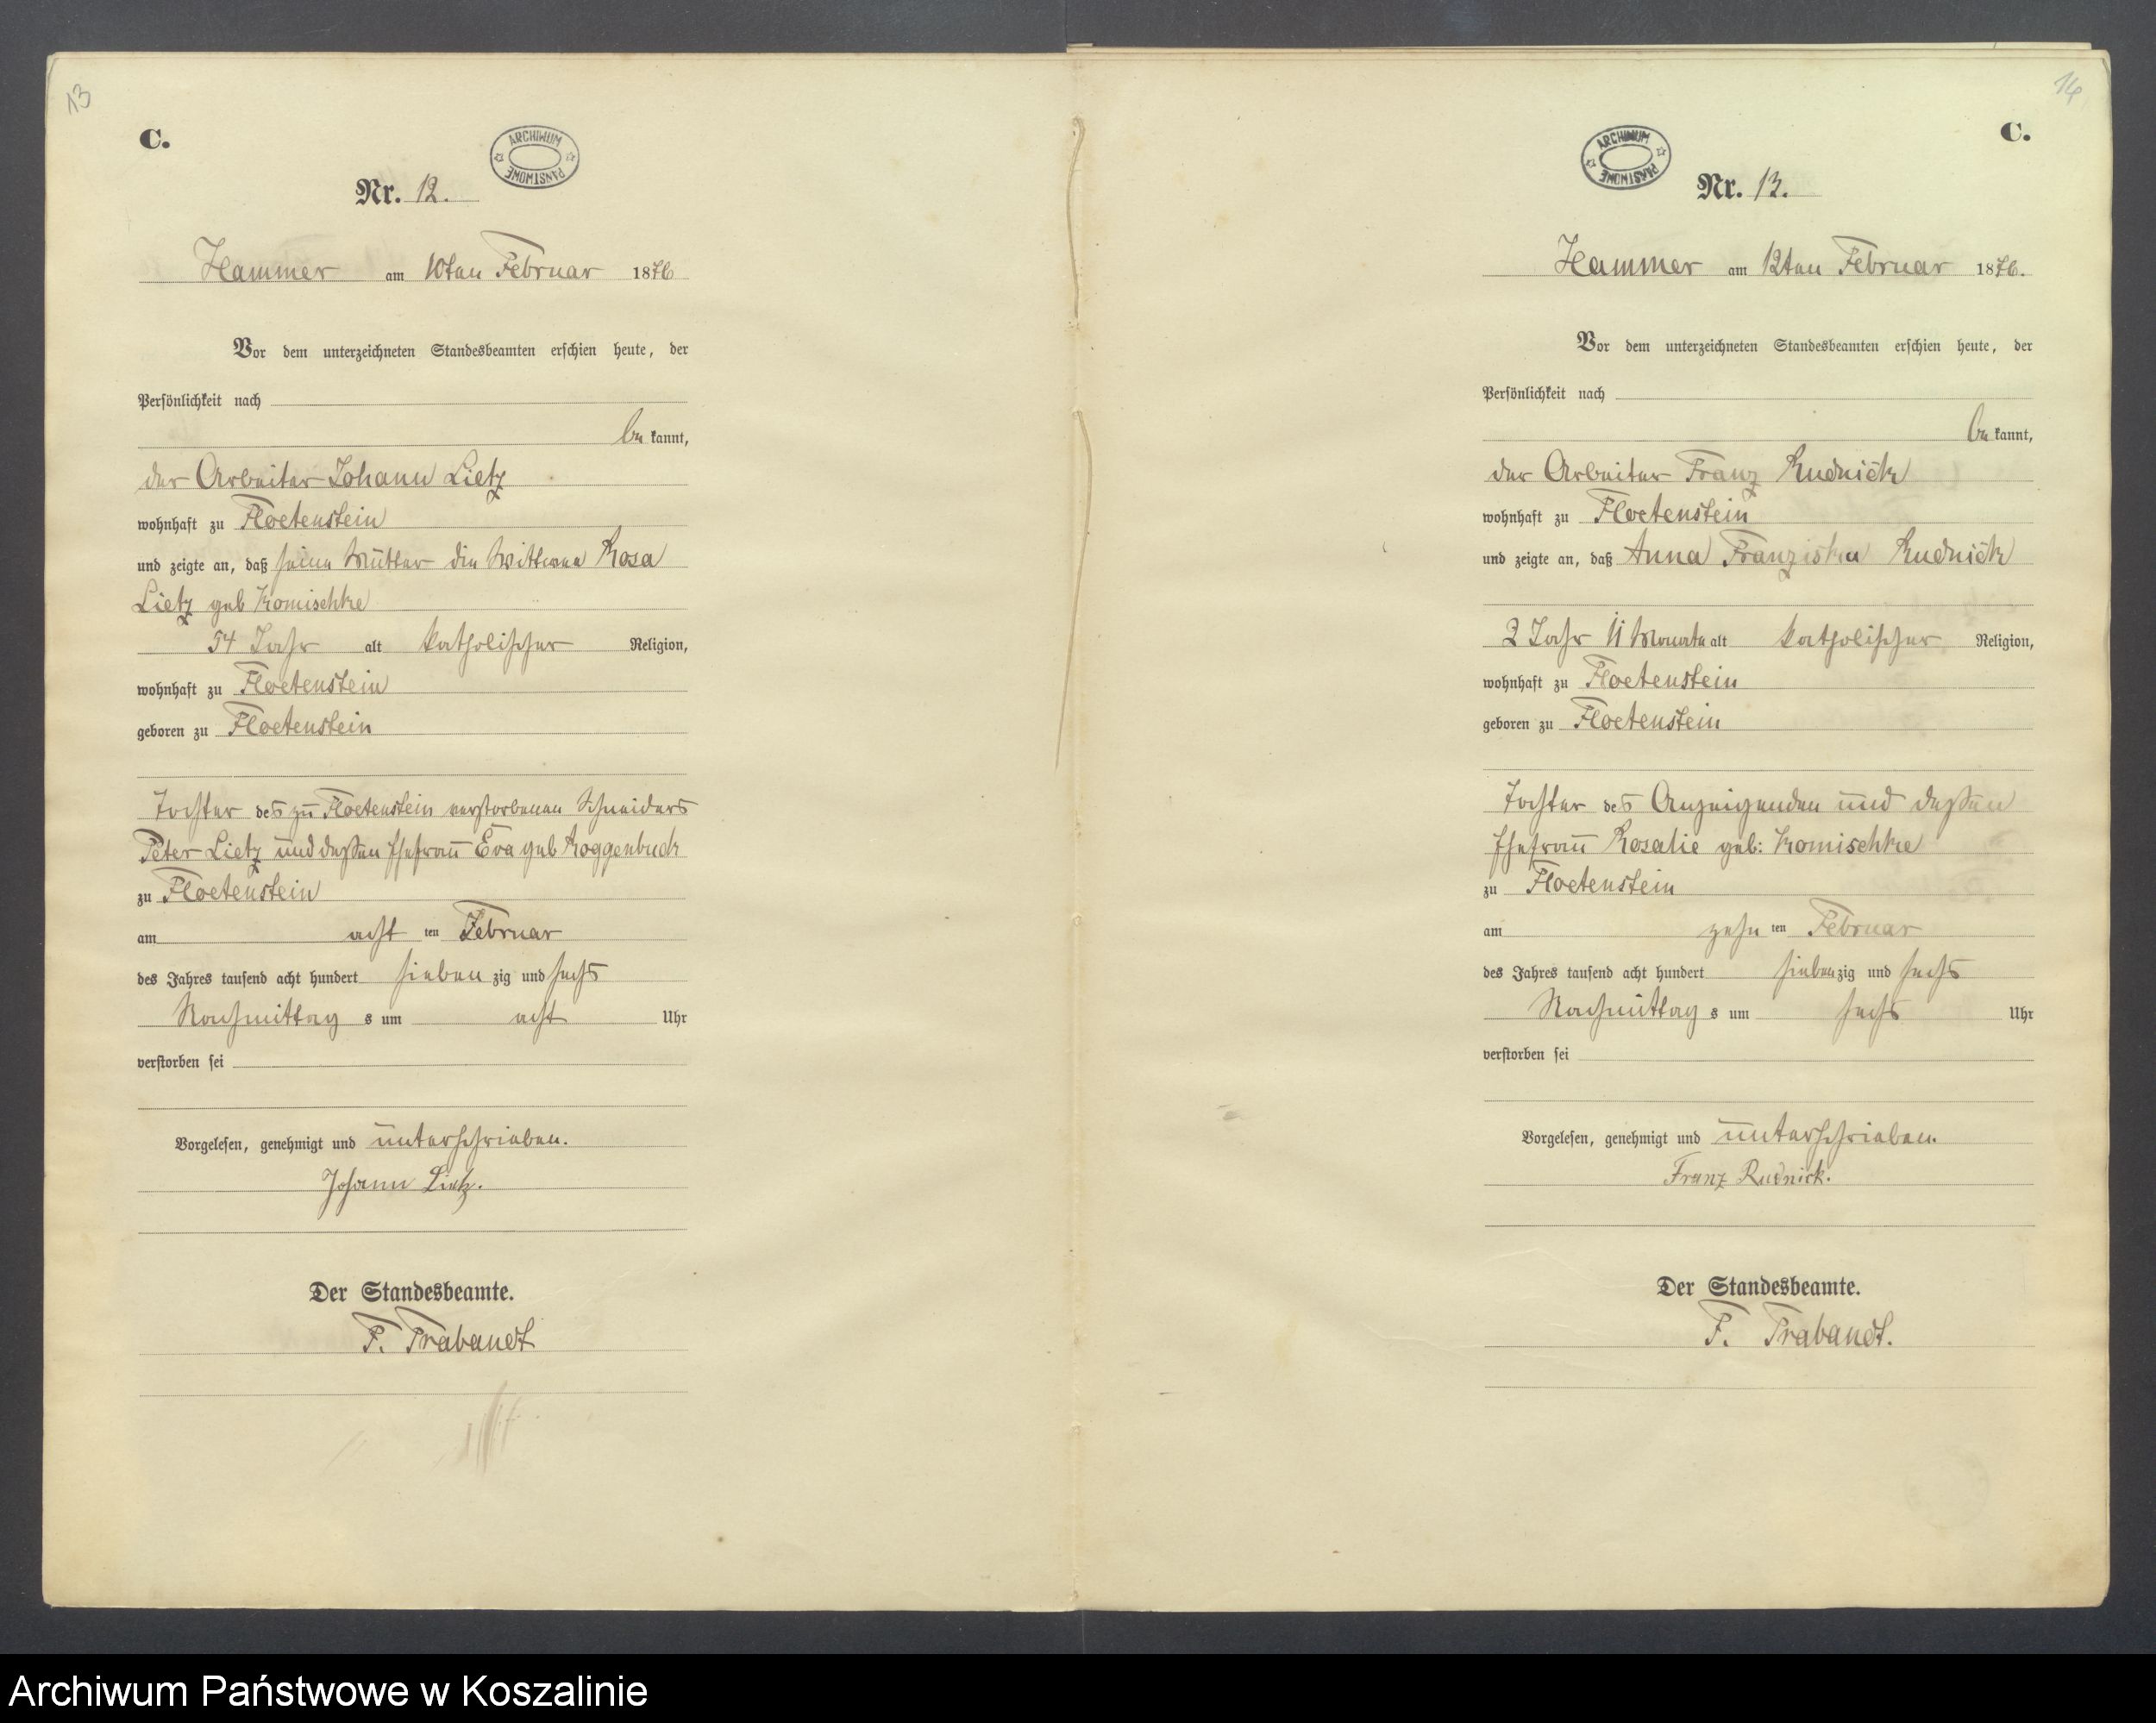 13
C.
ARCHIWUM PAŃSTWOWE
Nr. 12.
Hammer am 10ten Februar 1876
Vor dem unterzeichneten Standesbeamten erschien heute, der
Persönlichkeit nach
be kannt,
der Arbeiter Johann Lietz
wohnhaft zu Floetenstein
und zeigte an, daß seine Mutter die Wittwe Rosa
Lietz geb Komischke
54 Jahr alt katholischer Religion,
wohnhaft zu Floetenstein
geboren zu Floetenstein
Tochter des zu Floetenstein verstorbenen Schneiders
Peter Lietz und dessen Ehefrau Eva geb Roggenbuck
zu Floetenstein
am acht ten Februar
des Jahres tausend acht hundert sieben zig und sechs
Nachmittag s um acht Uhr
verstorben sei
Vorgelesen, genehmigt und unterschrieben.
Johann Lietz.
Der Standesbeamte.
F. Trabandt
14
C.
ARCHIWUM PAŃSTWOWE
Nr. 13.
Hammer am 12ten Februar 1876.
Vor dem unterzeichneten Standesbeamten erschien heute, der
Persönlichkeit nach
be kannt,
der Arbeiter Franz Rudnick
wohnhaft zu Floetenstein
und zeigte an, daß Anna Franziska Rudnick
2 Jahr 11 Monate alt katholischer Religion,
wohnhaft zu Floetenstein
geboren zu Floetenstein
Tochter des Anzeigenden und dessen
Ehefrau Rosalie geb: Komischke
zu Floetenstein
am zehn ten Februar
des Jahres tausend acht hundert sieben zig und sechs
Nachmittag s um sechs Uhr
verstorben sei
Vorgelesen, genehmigt und unterschrieben.
Franz Rudnick.
Der Standesbeamte.
F. Trabandt.
Archiwum Państwowe w Koszalinie